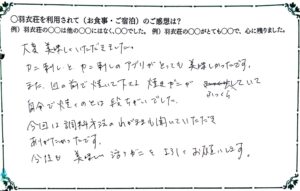 ○羽衣荘を利用されて(お食事・ご宿泊)のご感想は?
例)羽衣荘の○○は他の○○にはなく、○○でした。 例)羽衣荘の○○がとても○○で、心に残りました。
大変美味しくいただきました。
カニ刺しとカニ刺しのアブリがとっても美味しかったです。
また、目の前で焼いて下さる焼きガニが ふっくらしていて
自分で焼くのとは段ちがいでした。
今回は調料方法のわがままも聞いていただき
ありがたかったです。
今後も美味しい活ガニをよろしくお願いします。